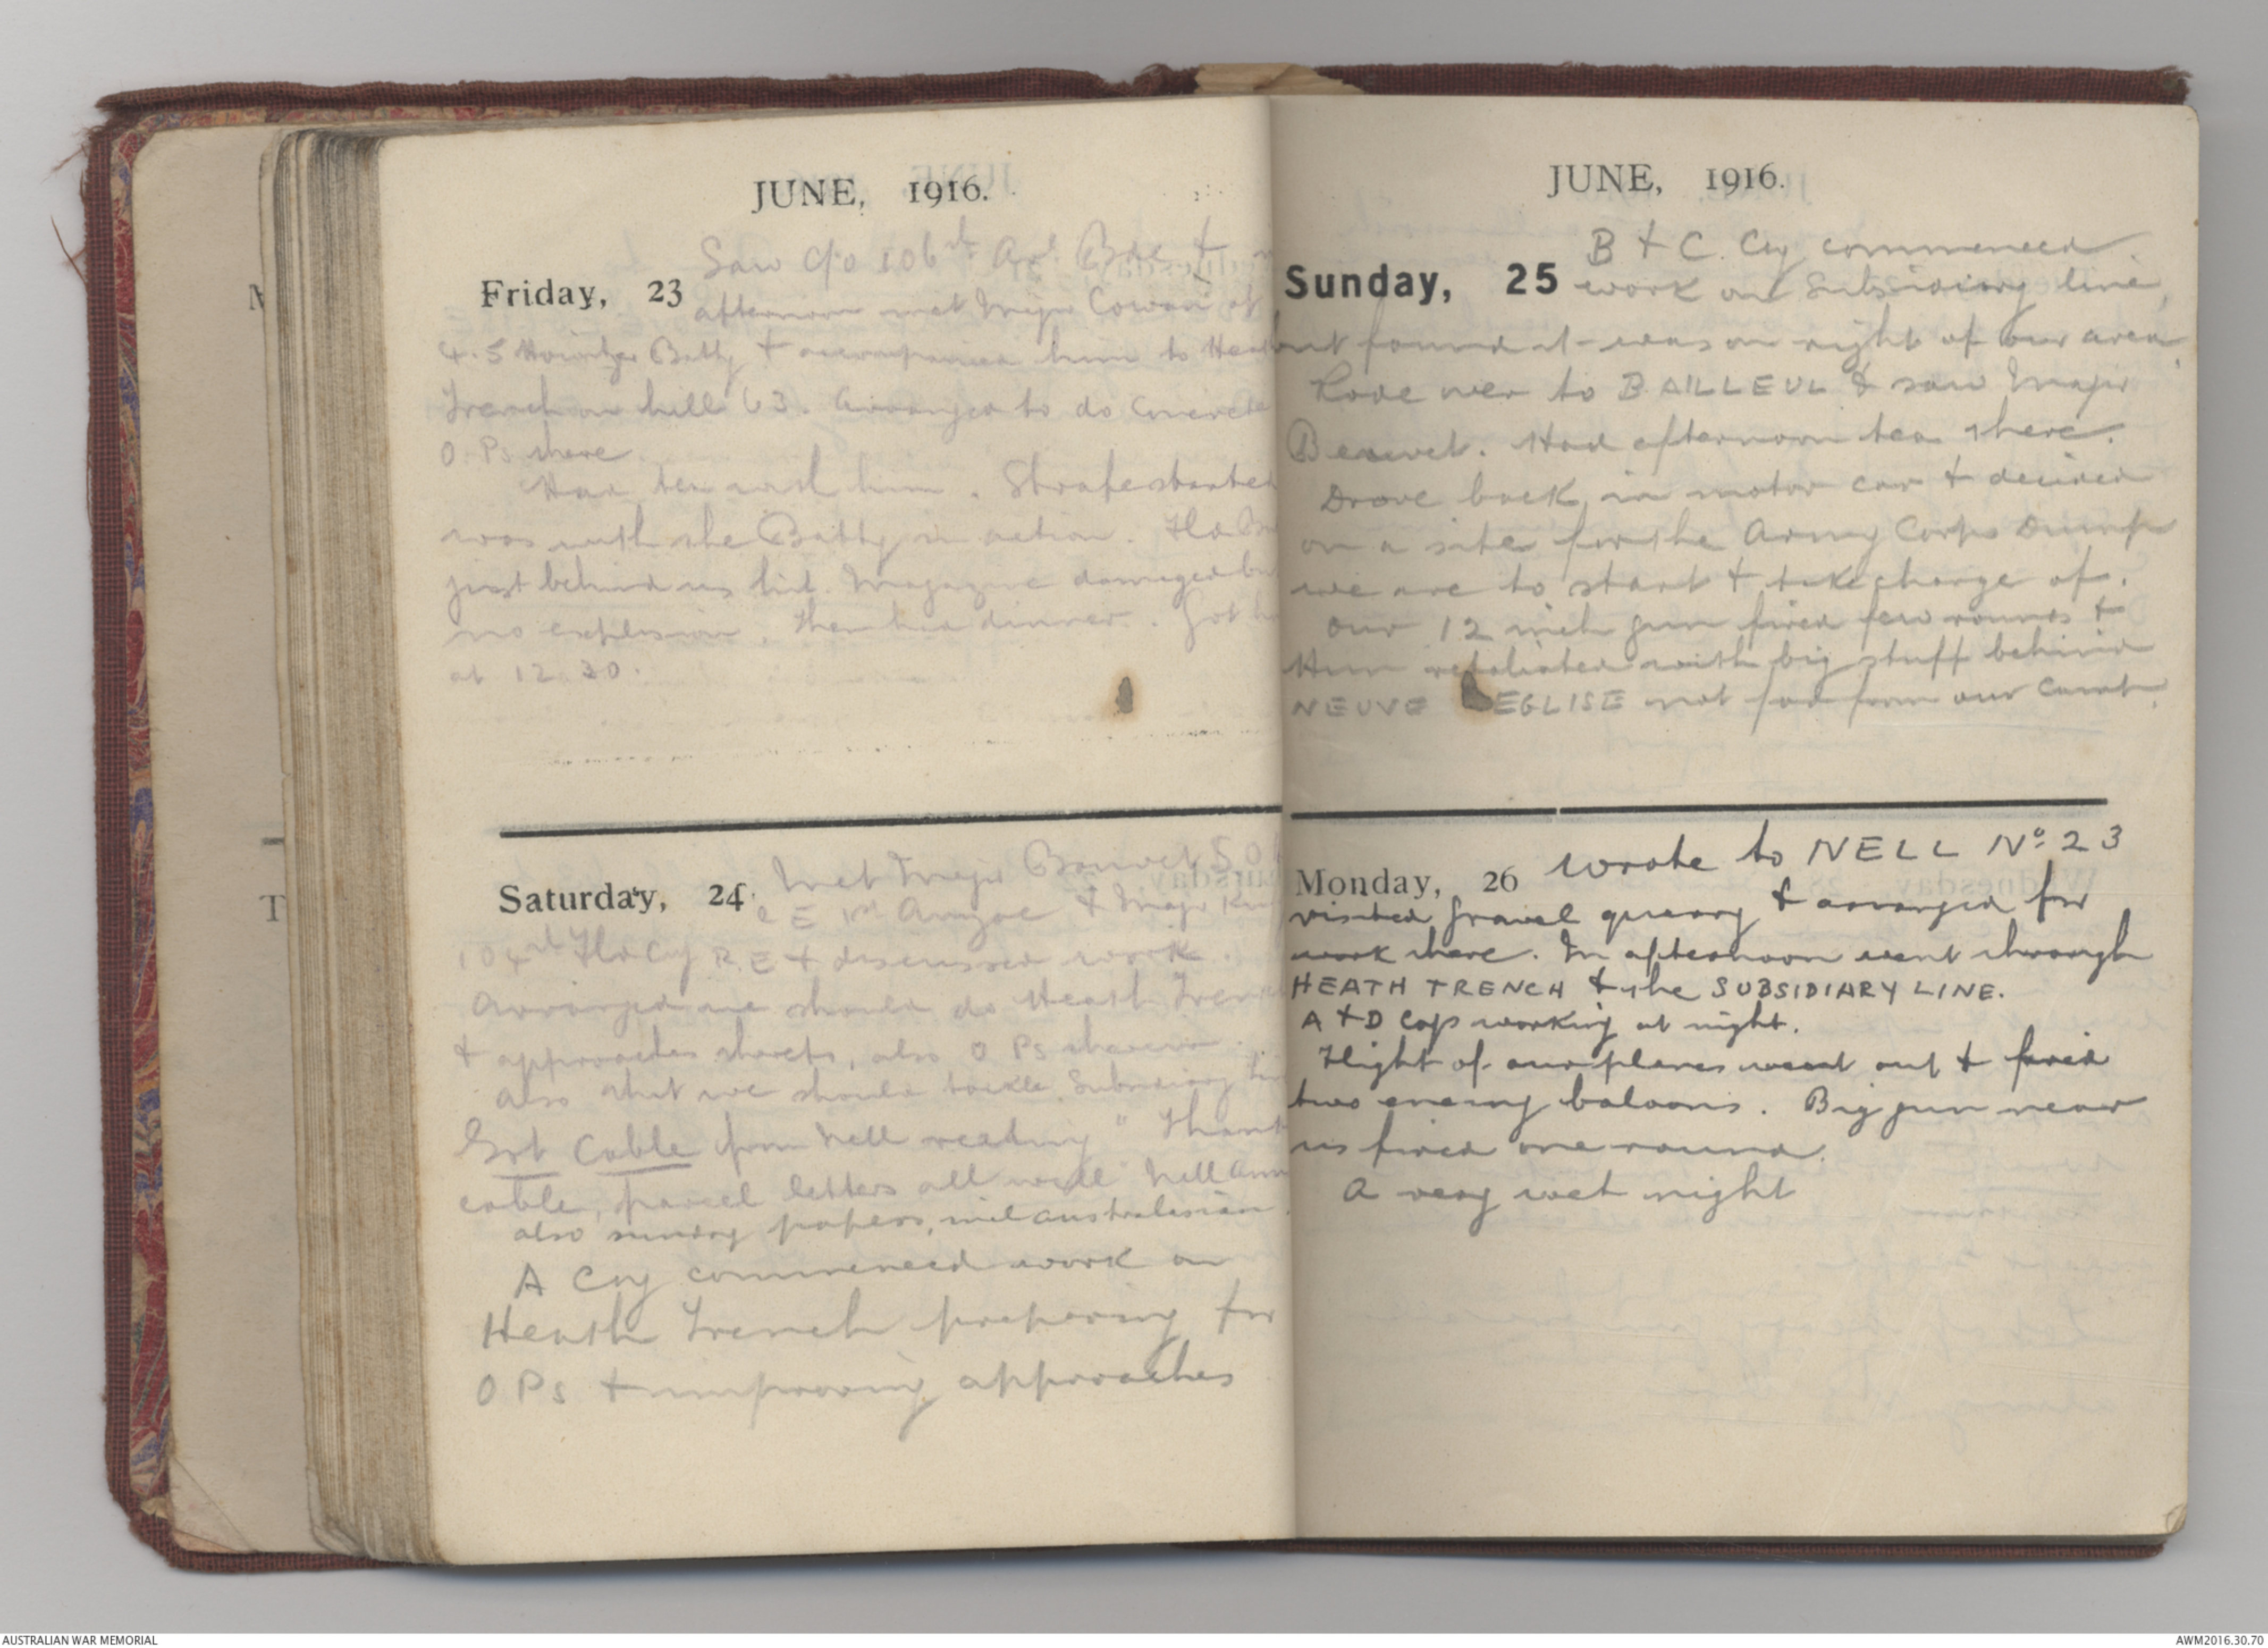 JUNE, 1916.
Friday, 23
Saw C/o 106th Art Bde &
afternoon met Major Cowan at
4.5 Howitzer Batty & accompanied him to Hea
Trench on hill 63. Arranged to do concrete
O.Ps there
Had tea with him. Strafe started
was with the Batty in action.
just behind us hit. Magazine damaged bu
no explosion. Then had dinner. Got h
at 12.30.
Saturday, 24.
Met Major
CE Anzac & Major
104th Fld Coy R.E & discussed work.
Arranged we should do Heath Tren
& approaches streets, also O Ps therein.
Also that we should tackle Subsidiary Li
Got Cable from Nell reading "Thank
cable, parcel letters all well" Nell
also sunday papers, Australasian.
A Coy commenced work on
Heath Trench preparing for
O Ps & improving approaches
JUNE, 1916.
Sunday, 25
B & C. Coy commenced
work on Subsidiary line,
but found it was on right of our area.
Rode over to BAILLEUL & saw Major
Had afternoon tea there.
Drove back in motor car & decided
on a site for the Army Corps Dump
we are to start & take charge of.
Our 12 inch gun fired few rounds &
Hun retaliated with big stuff behind
NEUVE EGLISE not far from our camp.
Monday, 26
Wrote to NELL No 23
visited gravel quarry & arranged for
work there. In afternoon went through
HEATH TRENCH & the SUBSIDIARY LINE.
A & D Coys working at night.
Flight of our planes went out & fired
two enemy baloons. Big gun near
us fired one round.
A very wet night
AUSTRALIAN WAR MEMORIAL
AWM2016.30.70